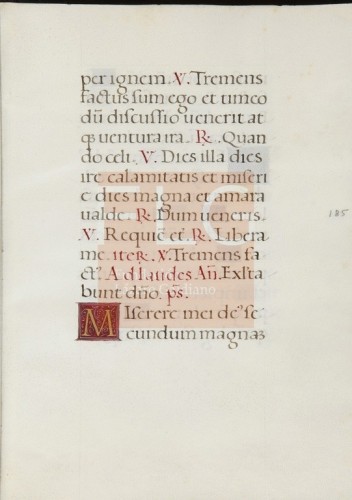 per ignem. V. Tremens
factus sum ego et timeo
dū discussio uenerit at
qȝ uentura ira. R. Quan
do celi. V. Dies illa dies
ire calamitatis et miseri
e dies magna et amara
ualde. R. Dum ueneris.
V. Requiē et. R. Libera
me. iteR. V. Tremens fa
ct9. Ad laudes. Añ. Exsta
bunt dño. ps.
Miserere mei de9 se
cundum magnaʒ
185
FLG